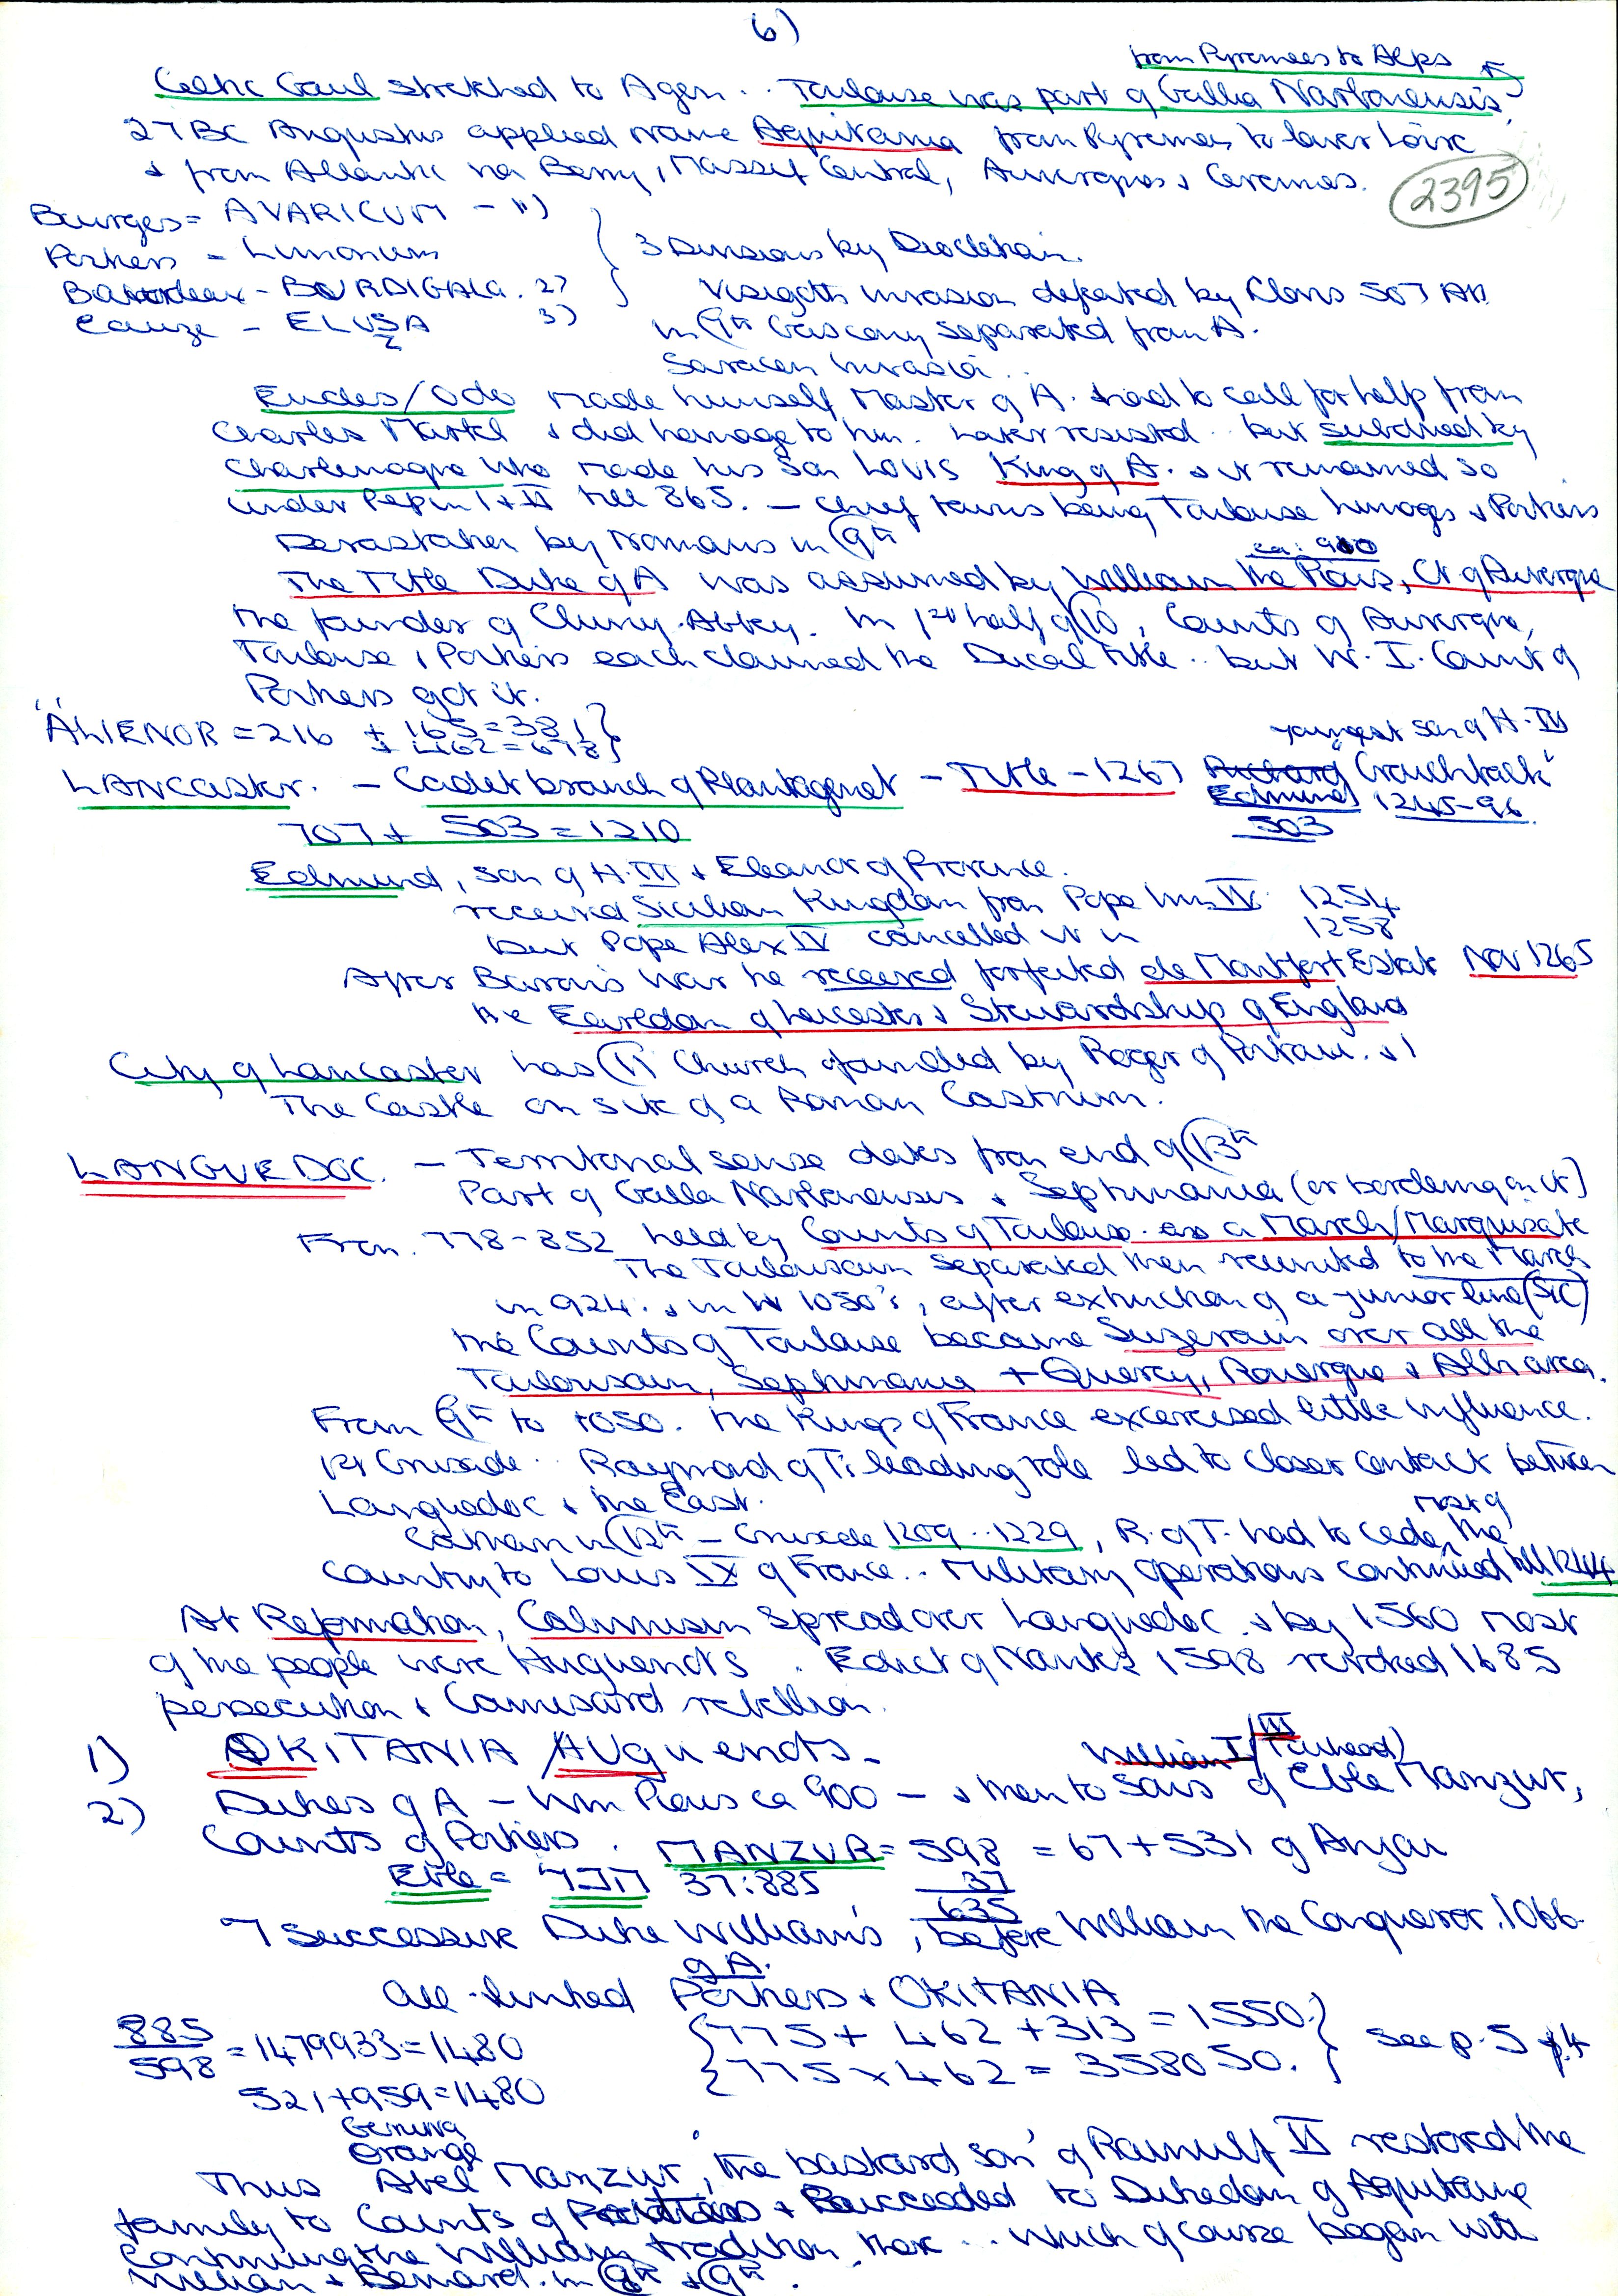 6)
from Pyrenees to Alps
Celtic Gaul stretched to Agen .. Toulouse was part of Gallia Narbonensis
27 BC Augustus applied name Aquitania from Pyrenees to lower Loire
& from Atlantic via Berry, Massif Central, Auvergnes & Cevennes.
2395
Bourges = AVARICUM - 1)
Poitiers = Limonum
Bordeaux - BOURDIGALA. 2)
Eauze - ELUSA 3)
Z
3 Divisions by Diocletian.
Visigoth invasion defeated by Clovis 507 AD.
in 9th Gascony separated from A.
Saracen Invasion ..
Eudes/Odo made himself Master of A. & had to call for help from
Charles Martel & did homage to him. Later resisted .. but subdued by
Charlemagne who made his son LOUIS King of A. & it remained so
under Pepin I + II till 865. - Chief towns being Toulouse Limoges & Poitiers
Devastation by Normans in 9th
ca: 900
The Title Duke of A was assumed by William the Pious, Ct of Auvergne
the founder of Cluny Abbey. In 1st half of 10, Counts of Auvergne,
Toulouse, Poitiers each claimed the Ducal title .. but W. I. Count of
Poitiers got it.
"ALIENOR = 216 + 165 = 381
+ 462 = 678
youngest son of H. III
LANCASTER. - Cadet branch of Plantagenet - Title - 1267 Richard 'Crouchback'
Edmund 1245-96
707 + 503 = 1210
503
Edmund, son of H. III & Eleanor of Provence.
received Sicilian Kingdom from Pope Inn IV 1254
but Pope Alex IV cancelled it in 1258
After Baron's War he received forfeited de Montfort Estate Nov 1265
the Earldom of Leicester & Stewardship of England
City of Lancaster has 11 Church founded by Roger of Poitou. & 1
The Castle on site of a Roman Castrum.
LANGUEDOC. - Territorial sense dates from end of 13th
Part of Gallia Narbonensis & Septimania (or bordering on it)
From. 778-852 held by Counts of Toulouse as a March/Marquisate
The Toulousain separated then reunited to the March
in 924. & in 1050's, after extinction of a junior line (Sic)
the Counts of Toulouse became Suzerain over all the
Toulousain, Septimania + Quercy, Rouergue & Albi area.
From 9th to 1050. the Kings of France excercised little influence.
1st Crusade .. Raymond of T: leading role led to closer contact between
Languedoc & the East.
most of
Cathars in 12th - Crusade 1209 .. 1229, R. of T. had to cede, the
Country to Louis IX of France .. Military operations continued till 1244
At Reformation, Calvinism spread over Languedoc & by 1560 most
of the people were Huguenots . Edict of Nantes 1598 revoked 1685
persecution & Camisard rebellion.
1) OKITANIA /HUguenots -
William I/III (Towhead)
2) Dukes of A - Wm Pious ca 900 - & then to sons of Eble Manzur,
Counts of Poitiers . MANZUR = 598 = 67 + 531 of Anjou
Eble = 37:885 37
635
7 Successive Duke William's, before William the Conqueror. 1066
of A.
all linked Poitiers & OKITANIA
885
598 = 1479933 = 1480
775 + 462 + 313 = 1550.
775 x 462 = 358050.
See p. 5
521 + 959 = 1480
Genuna
Orange
Thus Abel Manzur, 'the bastard son' of Rainulf II restored the
family to Counts of Poitiers & succeeded to Dukedom of Aquitaine
continuing the William tradition there ... which of course began with
William & Bernard. in 8th & 9th.